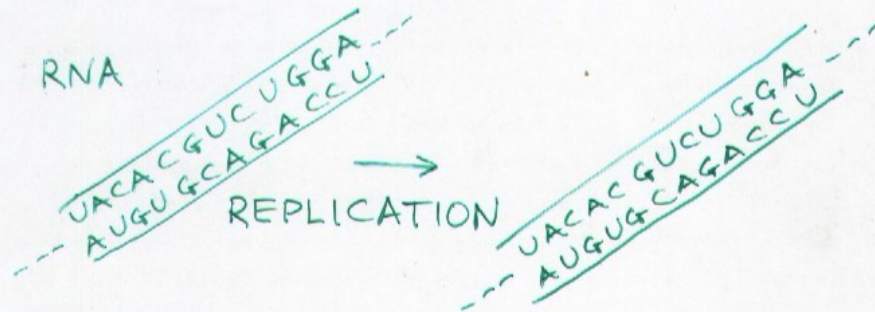 RNA
UACACGUCUGGA
AUGUGCAGACCU
REPLICATION
UACACGUCUGGA
AUGUGCAGACCU